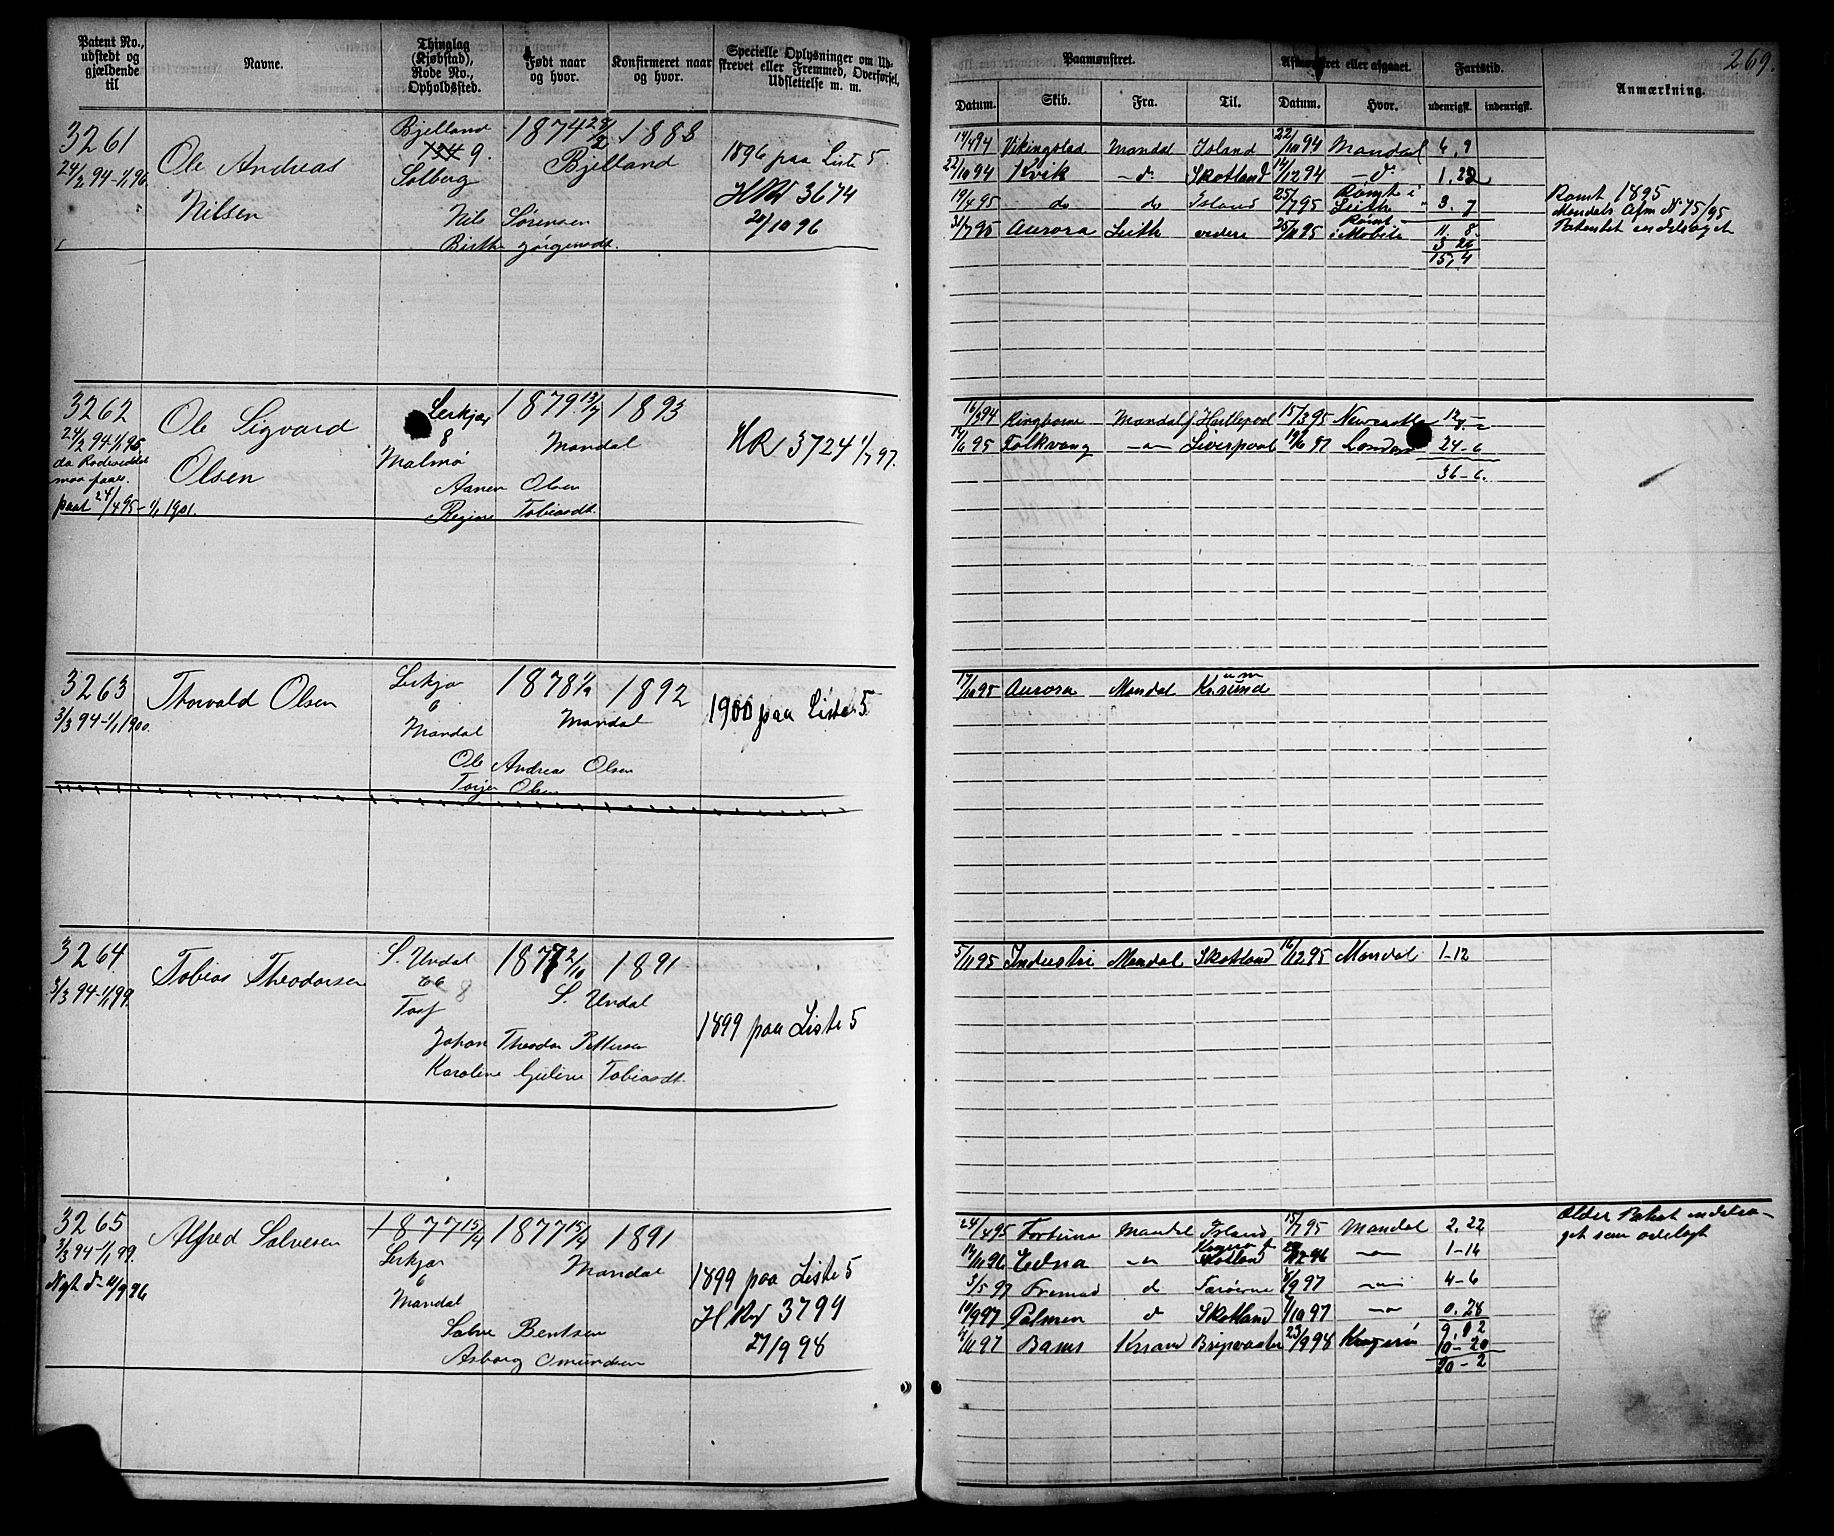 269.
Patent No., udstedt og gjældende til
Navne.
Thinglag (Kjøbstad), Rode No., Opholdssted.
Født naar og hvor.
Konfirmeret naar og hvor.
Specielle Oplysninger om Udskrevet eller Fremmed, Overførsel, Udslettelse m. m.
Paamønstret.
Afmønstret eller afgaaet.
Fartstid.
Anmærkning.
Datum.
Skib.
Fra.
Til.
Datum.
Hvor.
udenrigsk.
indenrigsk.
3261
24/2 94-1/1 96
Ole Andreas
Nilsen
Bjelland
9.
Solberg
1874 28/2
1888
Bjelland
Nils Sørensen
Birthe Jørgensdt.
1896 paa Liste 5.
HRv 3674
20/10 96
14/4 94 Vikingstad Mandal Island 22/10 94 Mandal 6. 9
22/10 94 Kvik - do Skotland 14/12 94 - do 1. 22
19/4 95 do do Island 25/7 95 Rømt i Leith 3. 7
31/7 95 Aurora Leith videre 25/11 95 Rømt i Mobile
11. 8.
3 26
15, 4
Rømt 1895
Mandals Afm No 75/95
Patentet indelaget
3262
24/2 94-1/1 95
da Rodeseddel
maa faaes.
paat 24/4 95-1/1 1901.
Ole Sigvard
Olsen
Lerkjær
8
Malmø
1879 13/7
1893
Mandal
Aanen Olsen
Regine Tobiasdt.
HRv 3724 1/7 97.
16/3 94 Ringhorne Mandal f. Hartlepool 15/3 95 Newcastle 12 -
14/6 95 Folkvang - " - Liverpool 19/6 97 London 24-6
36-6.
3263
3/3 94-1/1 1900.
Thorvald Olsen
Lerkjær
6
Mandal
1878 1/9
1892
Mandal
Ole Andreas Olsen
Torjer Olsen
1900 paa Liste 5
17/10 95 Aurora Mandal Kr.sund
3264
3/3 94-1/1 99.
Tobias Theodorsen
S. Undal
8
1877 2/10
1891
S. Undal
Johan Theodor Pettersen
Karoline Geline Tobiasdt.
1899 paa Liste 5
5/11 95 Industri Mandal Skotland 16/12 95 Mandal 1-12
3265
3/3 94-1/1 99.
Ngt do 11/9 96
Alfred Salvesen
1877 15/4
1877 15/4
1891
Lerkjær
6
Mandal
Mandal
Salve Bentsen
Asborg Omundsen
1899 paa Liste 5
HRv 3799
27/9 98
24/4 95 Fortuna Mandal Island 15/7 95 Mandal 2. 22
14/10 96 Edna - " - Skotland - " - 1-14
3/5 97 Fremad do Færøerne 8/9 97 - " - 4-6
10/9 97 Palmen do Skotland 7/10 97 - " - 0. 28
9. 02
4/11 97 Bams Krsand 23/9 98 Kragerø 10-20
20-2
Ældre Patent indelaget som ødelagt